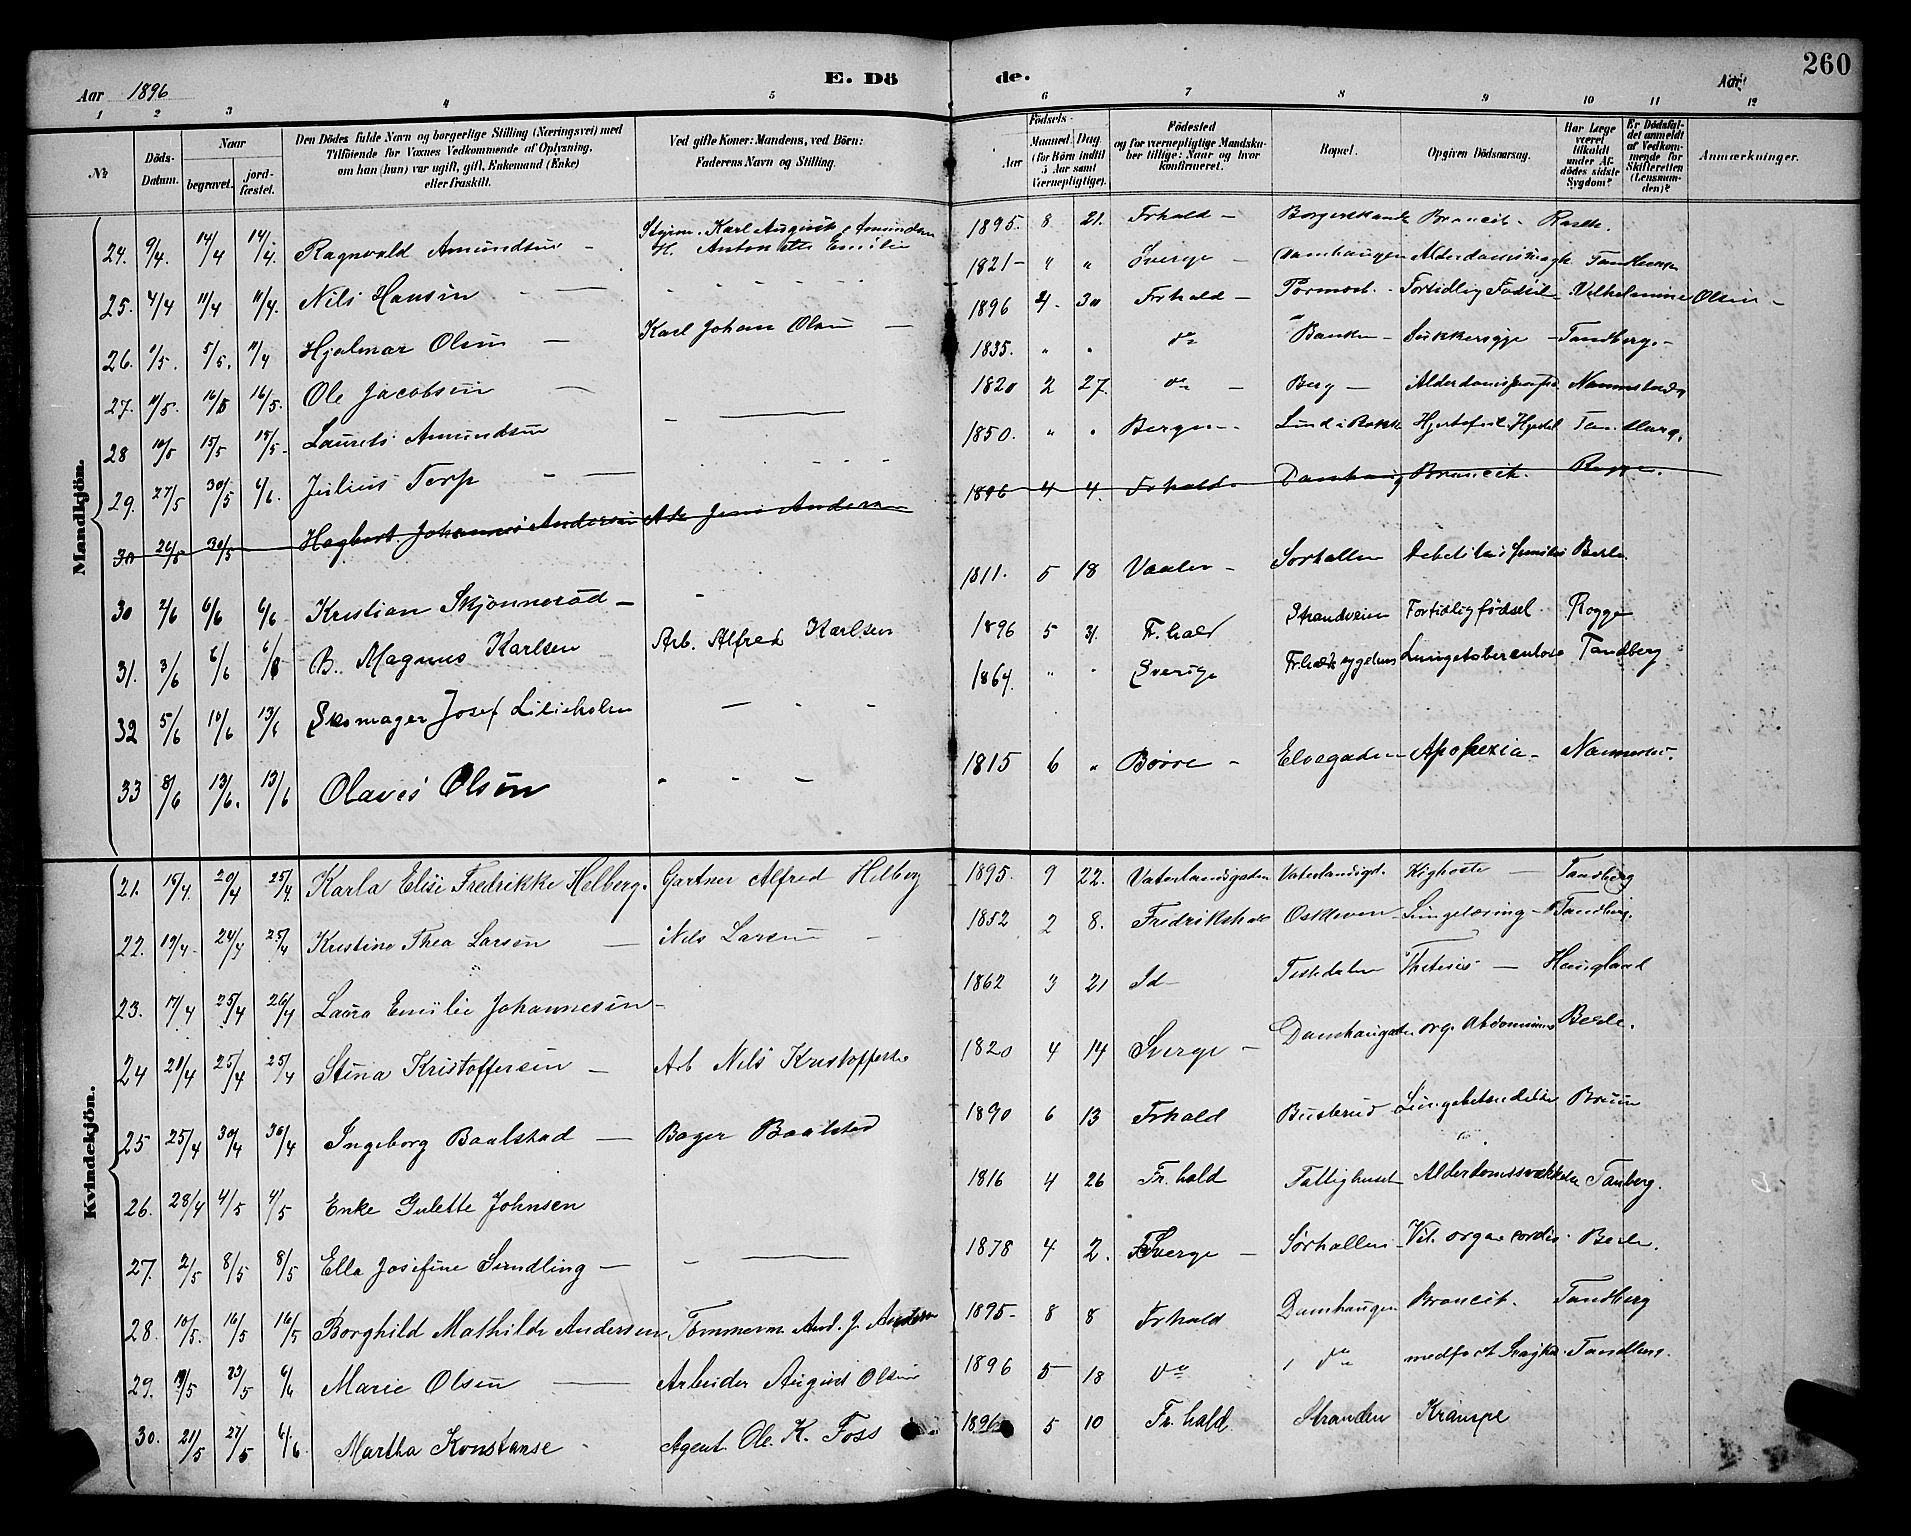 260
E. Dö de.
Aar 1896
Aar
1 2 3 4 5 6 7 8 9 10 11 12
№
Döds-Datum.
Naar
begravet.
jord-fæstet.
Den Dödes fulde Navn og borgerlige Stilling (Næringsvei) med
Tilföiende for Voxnes Vedkommende af Oplysning,
om han (hun) var ugift, gift, Enkemand (Enke)
eller fraskilt.
Ved gifte Koner: Mandens, ved Börn:
Faderens Navn og Stilling.
Födsels-
Aar
Maaned Dag
(for Börn indtil
5 Aar samt
Værnepligtige).
Födested
og for værnepligtige Mandska-
ber tillige: Naar og hvor
konfirmeret.
Bopæl.
Opgiven Dödsaarsag.
Har Læge
været
tilkaldt
under Af-
dödes sidste
Sygdom?
Er Dödsfal-
det anmeldt
af Vedkom-
mende for
Skifteretten
(Lensman-
den)?
Anmærkninger.
Mandkjön.
24. 9/4. 14/4 14/4. Ragnvald Amundsen – Styrm. Karl August Amundsen H. Antonette Emilie 1895. 8 21. Frhald – Broncit.
25. 4/4 11/4 11/4. Nils Hansen 1821 – " " Sverge – Damhaugen
26. 1/5. 5/5. 11/4 Hjalmar Olsen – Karl Johan Olsen – 1896 4. 30 Frhald – Fortidlig Födsel Vilhelmine Olsen –
27. 11/5. 16/5 16/5. Ole Jacobsen 1835. " " do Banken – Sukkersyge – Tandberg –
28 10/5 15/5 15/5. Laurits Amundsen 1820 2 27. do – Berg –
29. 27/5 30/5 6/6. Julius Torp 1850. " " Bergen –
30 26/5 30/5 Hagbart Johannes Andersen Jens Andersen 1896 4 4. Frhald Damhaug Broncit. Rogge.
30 2/6 6/6 6/6 Kristian Skjönneröd – 1811. 5 18 Vaaler – Sorhallen Berle.
31. 3/6 6/6 6/6 B. Magnus Karlsen Arb. Alfred Karlsen 1896 5 31 Fr.hald Strandveien Fortidlig födsel. Rogge
32 5/6 10/6 13/6 Skomager Josef Lilieholm 1864. " " Sverige Lungetuberculose Tandberg
33 8/6 13/6. 13/6 Olaves Olsen 1815 6 " Borre – Elvegaden Apoplexia –
Kvindekjön.
21. 15/4. 20/4 25/4. Karla Elise Fredrikke Helberg. Gartner Alfred Helberg 1895. 9 22. Vaterlandsgaden Vaterlandsgd. Kighoste – Tandberg
22. 19/4. 24/4 25/4 Kristine Thea Larsen – Nils Larsen – 1852 2 8. Fredrikshald Oskleven Lungetæring – Tandberg.
23. 17/4 25/4 26/4 Laura Emilie Johannesen – 1862 3 21 Id – Tistedalen – Haugland
24 20/4 25/4 25/4 Stina Kristoffersen – Arb Nils Kristoffersen 1820 4 14 Sverge – Berle.
25 25/4 30/4 30/4 Ingeborg Baalstad – Bager Baalstad 1890 6 13 Frhald Busterud Lungebetændelse Bruun
26. 28/4 4/5 4/5 Enke Gulette Johnsen 1816 4 26 Fr.hald Fattighuset Alderdomssvækkelse Tanberg.
27. 2/5 8/5 8/5 Ella Josefine Sundling – 1878 4 2. Sverge – Sørhallen Vit. organ cordis. Berle.
28. 10/5. 16/5 16/5 Borghild Mathilde Andersen Tömmerm. And. J. Andersen 1895 – 8 8 Frhald Damhaugen Broncit. Tandberg
29. 19/5 23/5 6/6 Marie Olsen – Arbeider August Olsen 1896 5 18 do do medfödt Tandberg.
30. 21/5 27/5 6/6 Martha Konstanse Agent Ole K. Foss 1896 5 10 Fr.hald Stranden Krampe